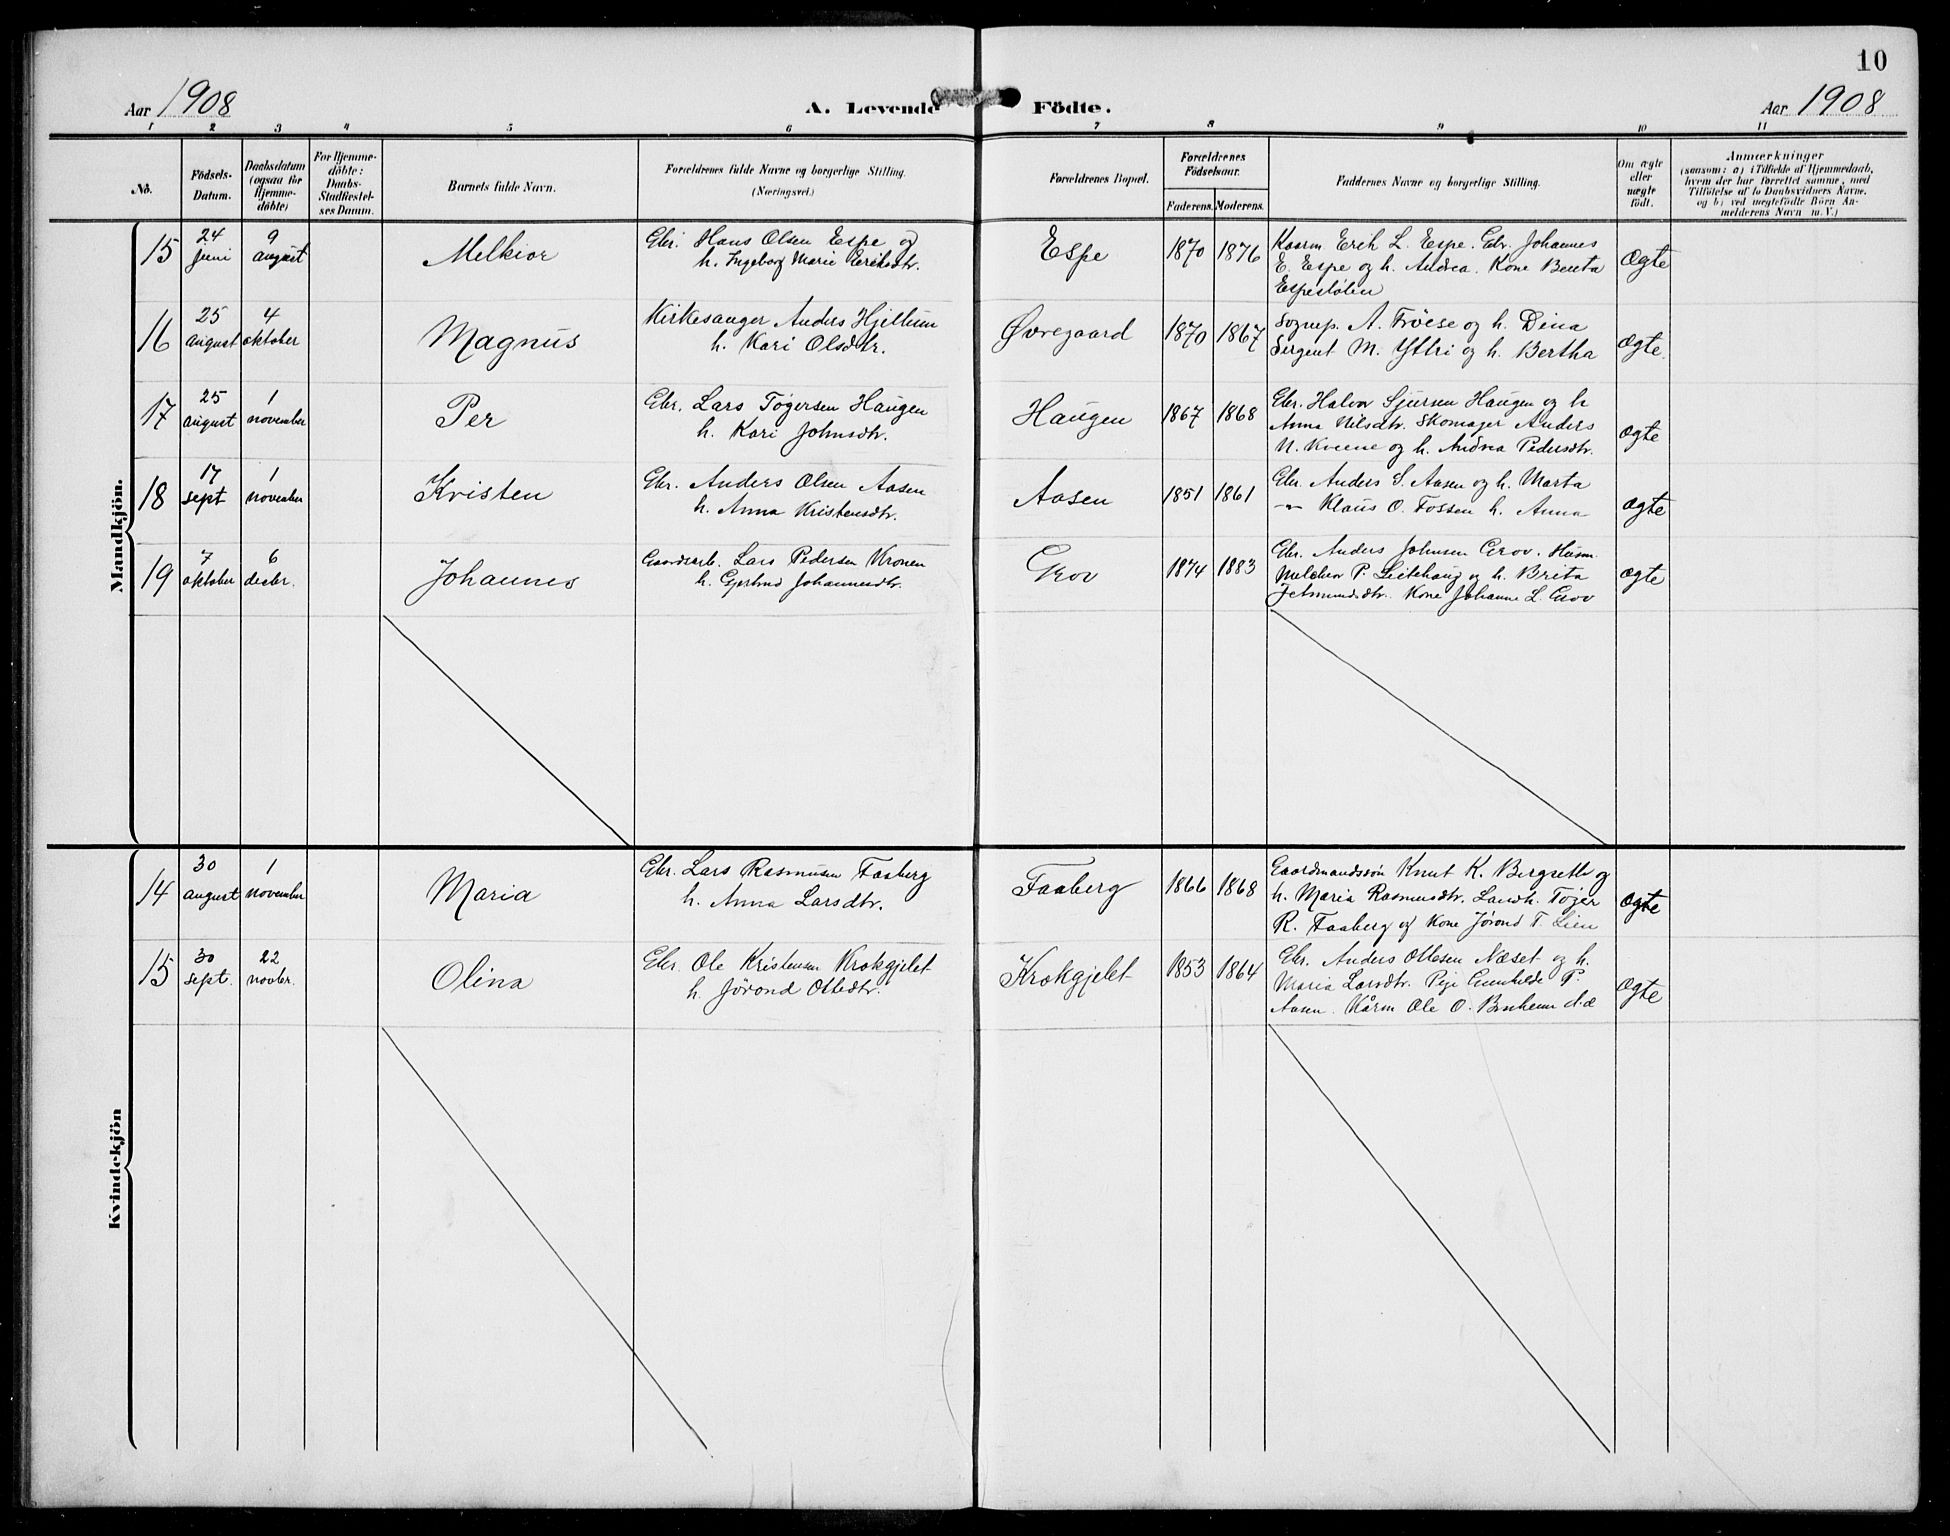 10
Aar 1908
A. Levende Födte.
Aar 1908
1 2 3 4 5 6 7 8 9 10 11
No.
Födsels-
Datum.
Daabsdatum
(ogsaa for
Hjemme-
döbte)
For Hjemme-
döbte:
Daabs-
Stadfæstel-
ses Datum.
Barnets fulde Navn.
Forældrenes fulde Navne og borgerlige Stilling.
(Næringsvei.)
Forældrenes Bopæl.
Forældrenes
Födselsaar.
Faderens. Moderens.
Faddernes Navne og borgerlige Stilling.
Om ægte
eller
uægte
födt.
Anmærkninger
(saasom: a) i Tilfælde af Hjemmedaab,
hvem der har forrettet samme, med
Tilföielse af to Daabsvidners Navne,
og b) ved uægtefödte Börn An-
melderens Navn m. V.)
Mandkjön.
15
24
juni
9
august
Melkior
Gbr. Hans Olsen Espe og
h. Ingeborg Marie Eriksdtr.
Espe
1870 1876
Kaarm Erik L. Espe. Gbr. Johannes
E. Espe og h. Andrea. Kone Benta
Espestølen
Ægte
16
25
august
4
oktober
Magnus
Kirkesanger Anders Hjellum
h. Kari Olsdtr.
Øvregaard
1870 1867
Sognep. A. Frøese og h. Dina
Sergent M. Yttri og h. Bertha
ægte.
17
25
august
1
november
Per
Gbr. Lars Tøgersen Haugen
h. Kari Johnsdtr.
Haugen
1867 1868
Gbr. Halvor Sjursen Haugen og h
Anna Nilsdtr. Skomager Anders
N. Kveene og h. Andrea Pedersdtr.
ægte
18
17
sept
1
november
Kristen
Gbr. Anders Olsen Aasen
h. Anna Kristensdtr.
Aasen
1851 1861
Gbr. Anders S. Aasen og h. Marta
-"- Klaus O. Fossen h. Anna
ægte
19
7
oktober
6
decbr.
Johannes
Gaardsarb. Lars Pedersen Kronen
h. Gjertrud Johannesdtr.
Grov
1874 1883
Gbr. Anders Johnsen Grov. Husm.
Melchior P. Leitehaug og h. Brita
Jetmundsdtr. Kone Johanne L. Grov
ægte
Kvindekjön
14
30
august
1
november
Maria
Gbr. Lars Rasmusen Faaberg
h. Anna Larsdtr.
Faaberg
1866 1868
Gaardmandssøn Knut K. Bergseth og
h. Maria Rasmusdtr. Landh. Tøger
R. Faaberg og Kone Jørond T. Lien
ægte
15
30
sept.
22
novbr.
Olina
Gbr. Ole Kristensen Krokgjelet
h. Jørond Ottedtr.
Krokgjelet
1853 1864
Gbr. Anders Ottesen Næset og h.
Maria Larsdtr. Pige Gunhilde P.
Aasen. Kårm Ole O. d.æ
ægte